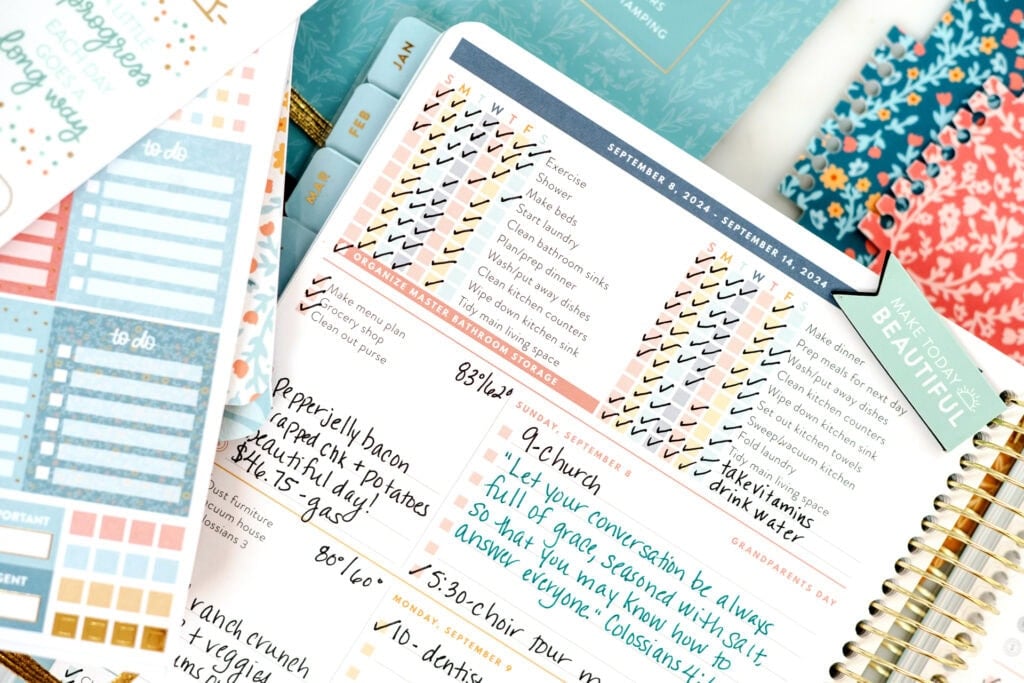 progress
EACH DAY
GOES A
long way
STAMPING
JAN
FEB
MAR
to do
to do
SEPTEMBER 8, 2024 - SEPTEMBER 14, 2024
S M T W T F S
Exercise
Shower
Make beds
Start laundry
Clean bathroom sinks
Plan/prep dinner
Wash/put away dishes
Clean kitchen counters
Wipe down kitchen sink
Tidy main living space
S M T W T F S
Make dinner
Prep meals for next day
Wash/put away dishes
Clean kitchen counters
Wipe down kitchen sink
Set out kitchen towels
Sweep/vacuum kitchen
Fold laundry
Tidy main living space
take vitamins
drink water
ORGANIZE MASTER BATHROOM STORAGE
Make menu plan
Grocery shop
Clean out purse
83°/62°
pepperjelly bacon
wrapped chk + potatoes
beautiful day!
$46.75-gas
SUNDAY, SEPTEMBER 8
GRANDPARENTS DAY
9-church
"Let your conversation be always
full of grace, seasoned with salt,
so that you may know how to
answer everyone." Colossians 4:
5:30-choir tour
Dust furniture
vacuum house
Colossians 3
80°/60°
ranch crunch
+ veggies
MONDAY, SEPTEMBER 9
10-dentis
MAKE TODAY
BEAUTIFUL